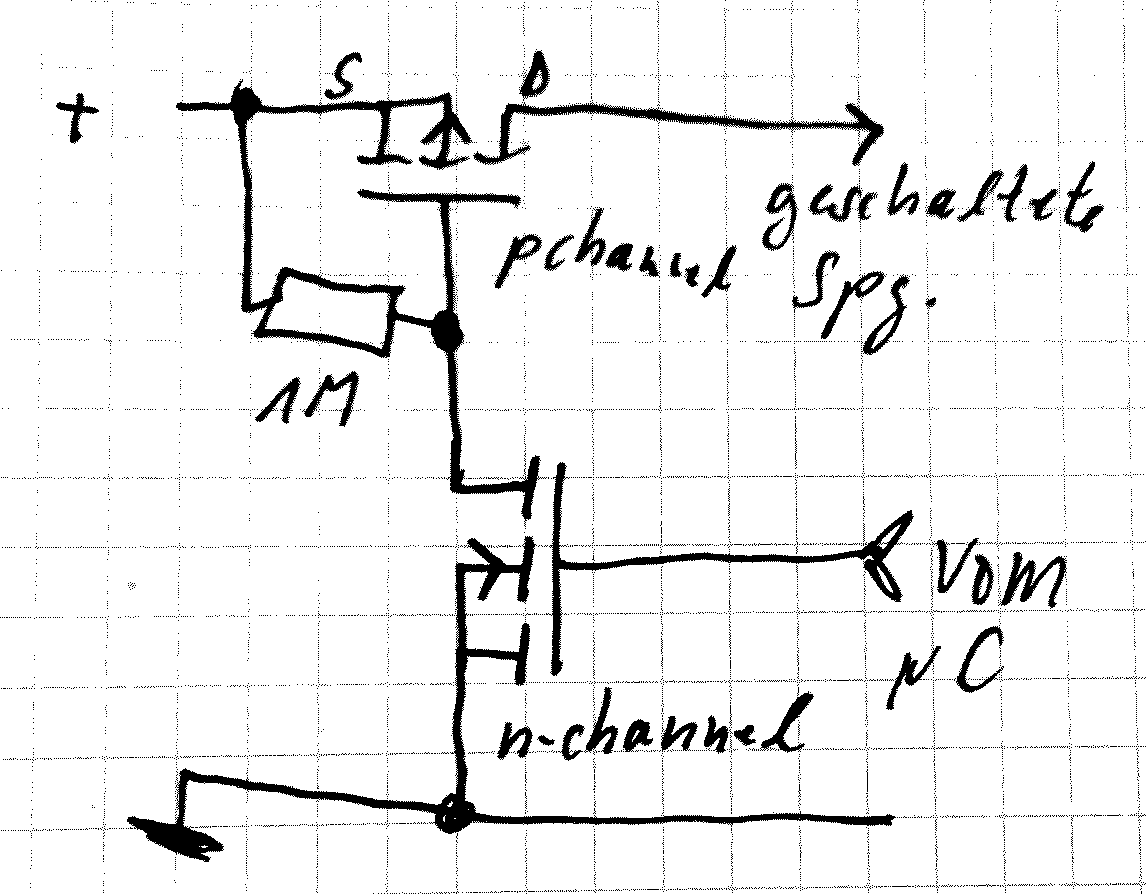 S D
+
pchannel
geschaltete
Spg.
1M
vom
µC
n-channel